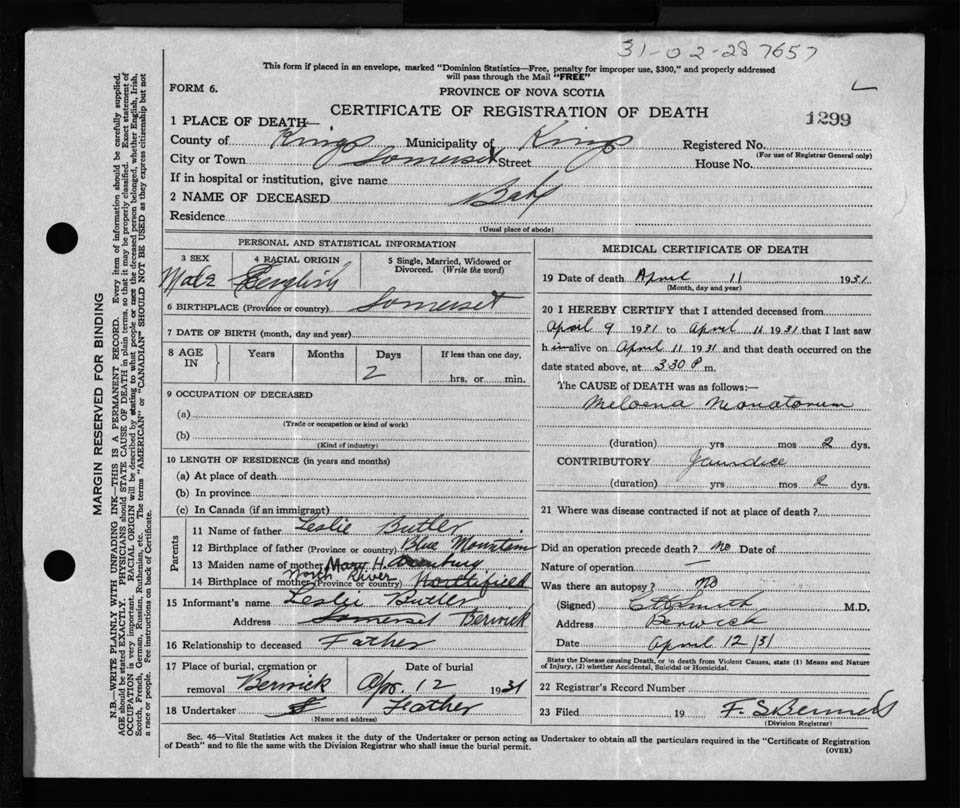 31-02-28 7657
This form if placed in an envelope, marked "Dominion Statistics—Free, penalty for improper use, $300," and properly addressed
will pass through the Mail "FREE"
FORM 6.
PROVINCE OF NOVA SCOTIA
CERTIFICATE OF REGISTRATION OF DEATH
1299
1 PLACE OF DEATH—
County of Kings Municipality of Kings Registered No.
(For use of Registrar General only)
City or Town Somerset Street House No.
If in hospital or institution, give name
2 NAME OF DECEASED Baby
Residence
(Usual place of abode)
PERSONAL AND STATISTICAL INFORMATION
3 SEX 4 RACIAL ORIGIN 5 Single, Married, Widowed or
Divorced. (Write the word)
Male English
6 BIRTHPLACE (Province or country) Somerset
7 DATE OF BIRTH (month, day and year)
8 AGE IN Years Months Days If less than one day,
2 hrs. or min.
9 OCCUPATION OF DECEASED
(a)
(Trade or occupation or kind of work)
(b)
(Kind of industry)
10 LENGTH OF RESIDENCE (in years and months)
(a) At place of death
(b) In province
(c) In Canada (if an immigrant)
Parents
11 Name of father Leslie Butler
12 Birthplace of father (Province or country) Blue Mountain
13 Maiden name of mother Mary H.
14 Birthplace of mother (Province or country) North River Northfield
15 Informant's name Leslie Butler
Address Somerset Berwick
16 Relationship to deceased Father
17 Place of burial, cremation or Date of burial
removal Berwick Apr. 12 1931
18 Undertaker Father
(Name and address)
MEDICAL CERTIFICATE OF DEATH
19 Date of death April 11 1931
(Month, day and year)
20 I HEREBY CERTIFY that I attended deceased from
April 9 1931 to April 11 1931 that I last saw
h im alive on April 11 1931 and that death occurred on the
date stated above, at 3.30 P m.
The CAUSE of DEATH was as follows:—
Meloena Neonatorum
(duration) yrs mos 2 dys.
CONTRIBUTORY Jaundice
(duration) yrs mos 2 dys.
21 Where was disease contracted if not at place of death?
Did an operation precede death? no Date of
Nature of operation —
Was there an autopsy? No
(Signed) M.D.
Address Berwick
Date April 12/31
State the Disease causing Death, or in death from Violent Causes, state (1) Means and Nature
of Injury, (2) whether Accidental, Suicidal or Homicidal.
22 Registrar's Record Number
23 Filed 19 F. S.
(Division Registrar)
Sec. 46—Vital Statistics Act makes it the duty of the Undertaker or person acting as Undertaker to obtain all the particulars required in the "Certificate of Registration
of Death" and to file the same with the Division Registrar who shall issue the burial permit.
(OVER)
MARGIN RESERVED FOR BINDING
N.B.—WRITE PLAINLY WITH UNFADING INK—THIS IS A PERMANENT RECORD. Every item of information should be carefully supplied.
AGE should be stated EXACTLY. PHYSICIANS should STATE CAUSE OF DEATH in plain terms, so that it may be properly classified. Exact statement of
OCCUPATION is very important. RACIAL ORIGIN will be described by stating to what people or race the deceased person belonged, whether English, Irish,
Scotch, French, German, Russian, Ruthenian, etc. The terms "AMERICAN" or "CANADIAN" SHOULD NOT BE USED as they express citizenship but not
a race or people. See instructions on back of Certificate.